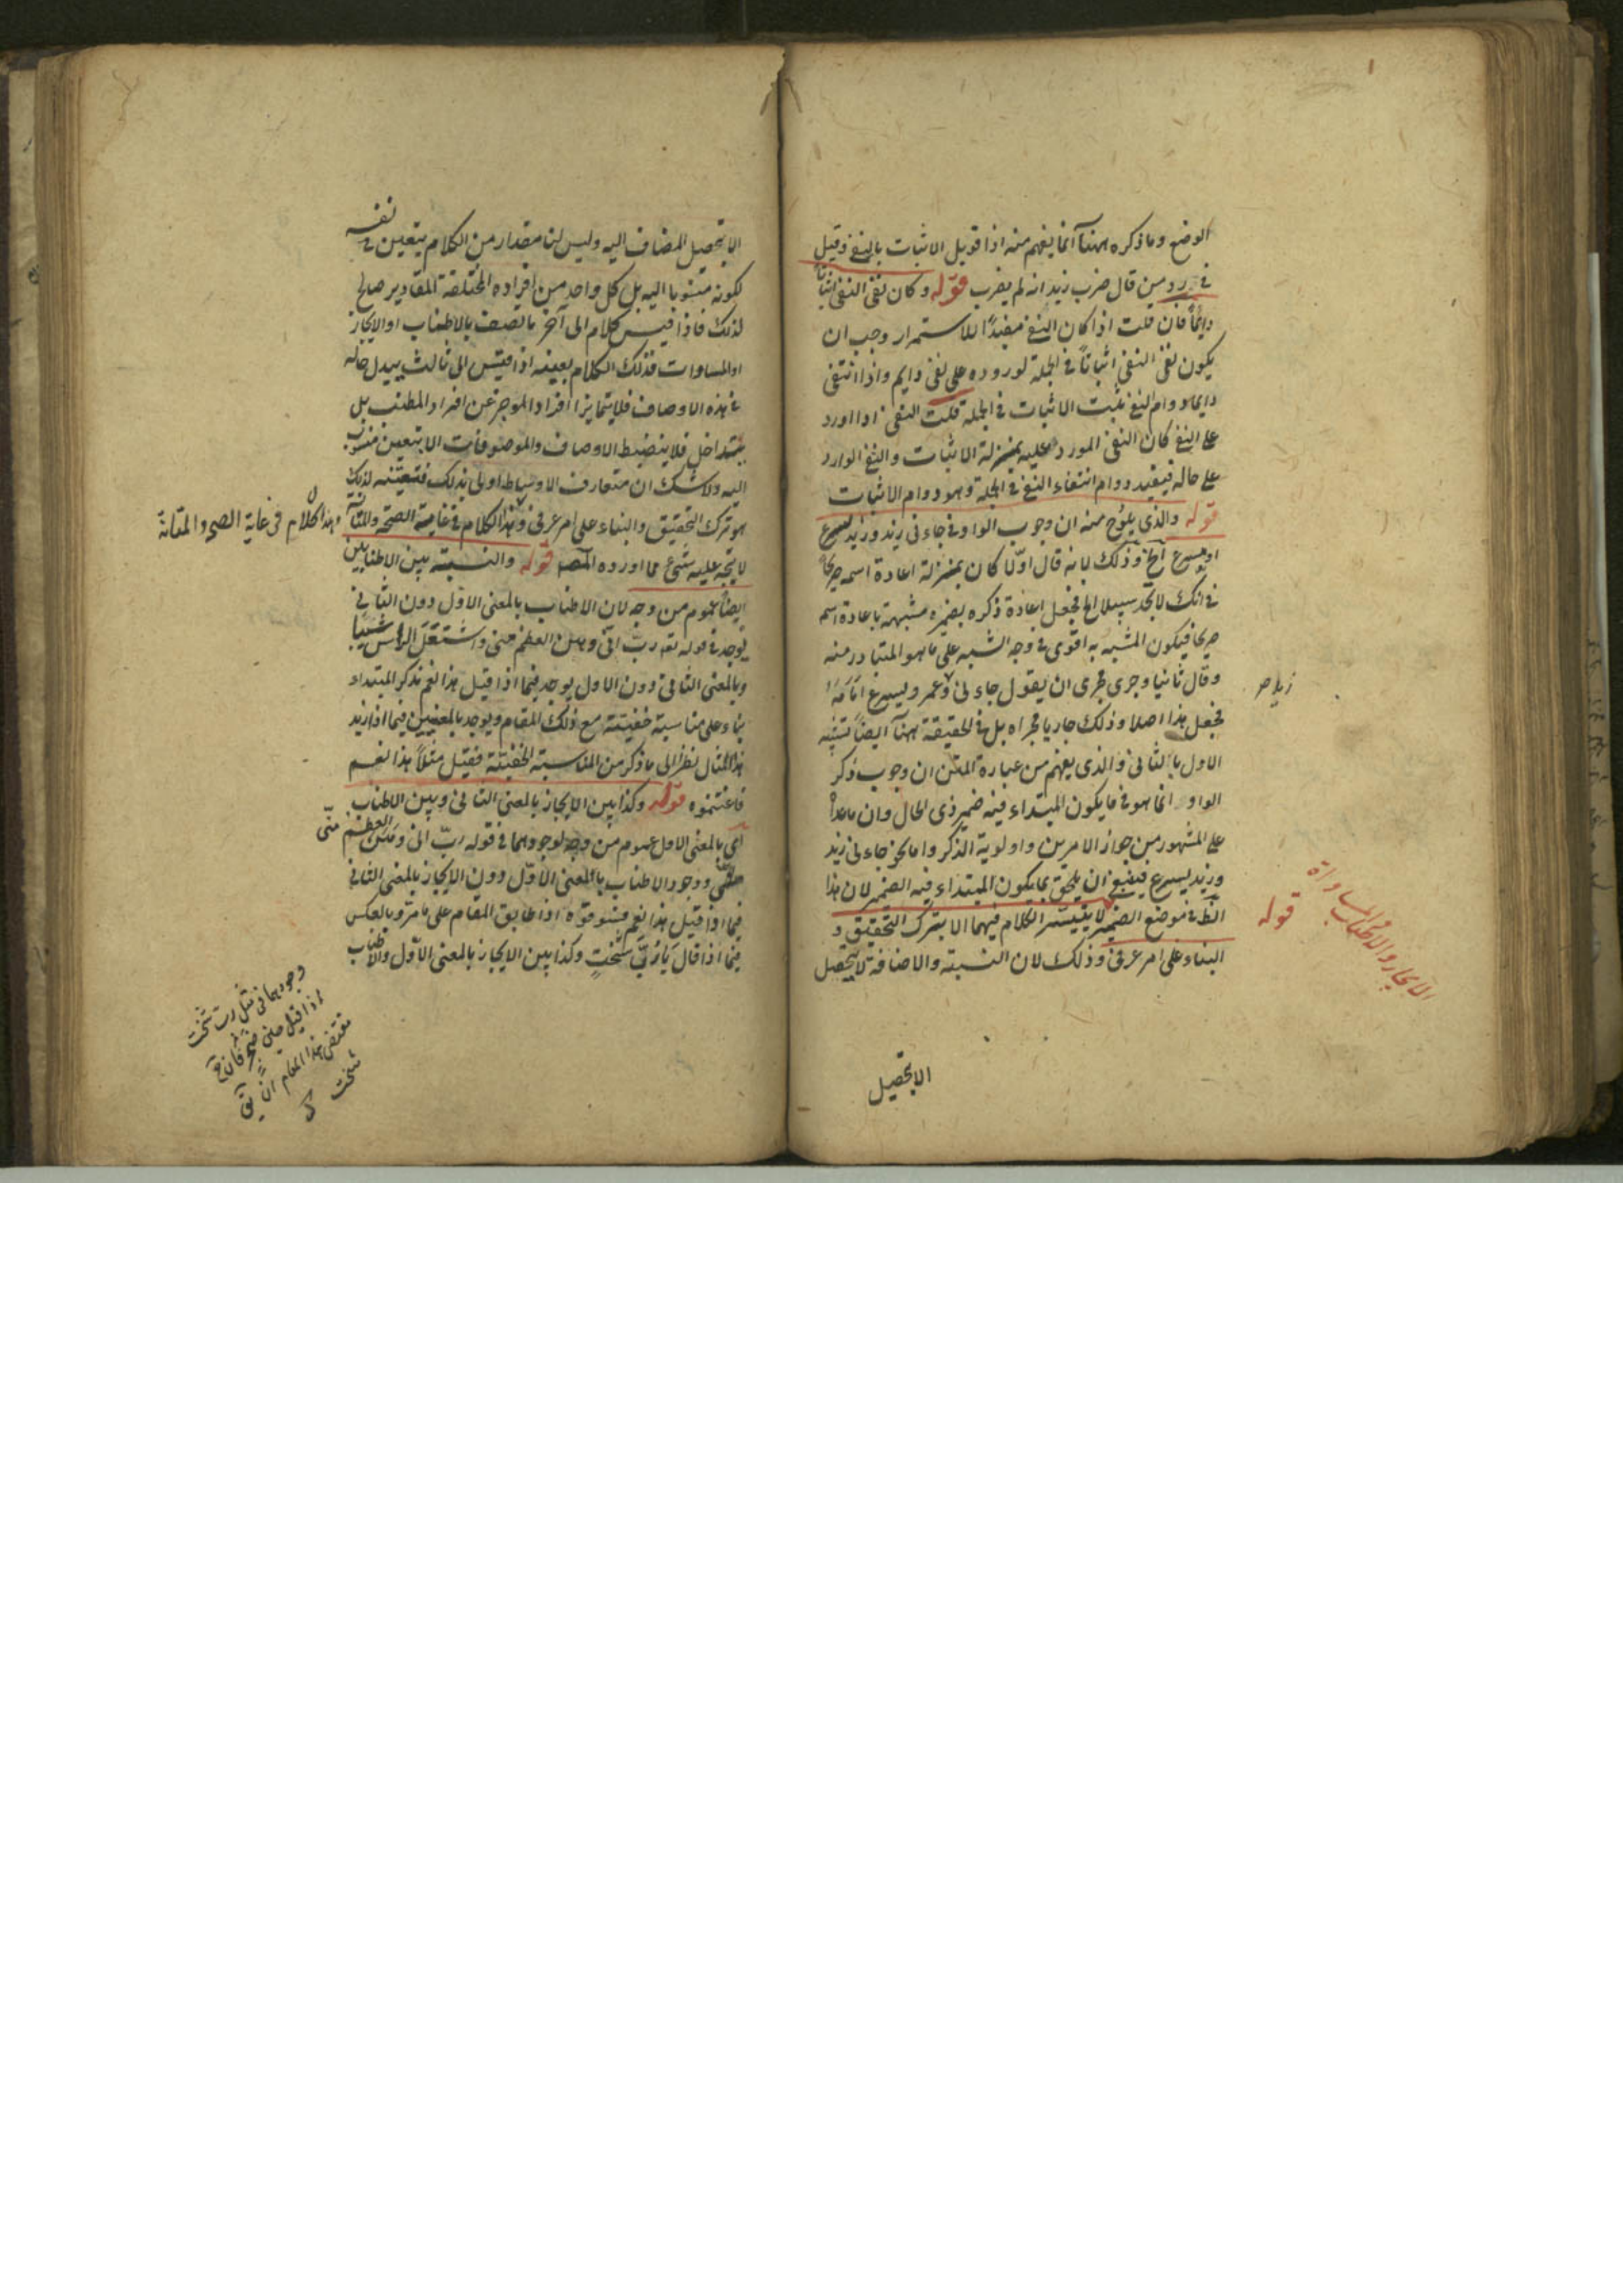 الوضع وما ذكره ههنا انما يفهم منه اذا قوبل الاثبات بالنفى وقيل
فى رد من قال ضرب زيد انه لم يضرب قوله وكان نفى النفى اثباتا
دايما فان قلت اذا كان النفى مفيدا للاستمرار وجب ان
يكون نفى النفى اثباتا فى الجملة لوروده على نفى دايم واذا انتفى
دايما دوام النفى يثبت الاثبات فى الجملة قلت النفى اذا اورد
على النفى كان النفى المورد عليه بمنزلة الاثبات والنفى الوارد
على حاله فيفيد دوام انتفاء النفى فى الجملة وهو دوام الاثبات
قوله والذى يلوح منه ان وجوب الواو فى جاءنى زيد وزيد يسرع
او يسرع الخ وذلك لانه قال اولا كان بمنزلة اعادة اسمه صريحا
فى انك لا تجد سبيلا الخ فجعل اعادة ذكره بضميره مشبهة باعادة اسم
صريحا فيكون المشبه به اقوى فى وجه الشبه على ما هو المتبادر منه
وقال ثانيا وجرى مجرى ان يقول جاءنى وعمرو يسرع امامه
فجعل هذا اصلا وذلك جاريا مجراه بل فى الحقيقة ههنا ايضا تشبيه
الاول بالثانى والذى يفهم من عبارة المتن ان وجوب ذكر
الواو انما هو فى ما يكون المبتداء فيه ضمير ذى الحال وان ما عداه
على المشهور من جواز الامرين واولوية الذكر واما نحو جاءنى زيد
وزيد يسرع فينبغى ان يلحق بما يكون المبتداء فيه الضمير لان هذا
الظ فى موضع الضمير لا يتيسر الكلام فيهما الا بترك التحقيق و
البناء على امر عرفى وذلك لان النسبة والاضافة لا يتحصل
قوله
الايجاز والاطناب والمساواة
الا بتحصيل
الا بتحصيل المضاف اليه وليس لنا مقدار من الكلام يتعين فى نفسه
لكونه منسوبا اليه بل كل واحد من افراده المختلفة المقادير صالح
لذلك فاذا قيس كلام الى آخر ما تصف بالاطناب او الايجاز
او المساوات فذلك الكلام بعينه اذا قيس الى ثالث يبدل حاله
فى هذه الاوصاف فلا يتمايز افراد الموجز عن افراد المطنب بل
يتداخل فلا ينضبط الاوصاف والموصوفات الا بتعيين منسوب
اليه ولا شك ان متعارف الاوساط اولى بذلك فتعيينه لذلك
هو ترك التحقيق والبناء على امر عرفى وهذا الكلام فى غاية الصحة والمتانة
وهذا الكلام فى غاية الصحة والمتانة
لا يتجه عليه شئ مما اورده المصـ قوله والنسبة بين الاطنابين
ايضا عموم من وجه لان الاطناب بالمعنى الاول دون الثانى
يوجد فى قوله تعـ رب انى وهن العظم منى واشتعل الراس شيبا
وبالمعنى الثانى دون الاول يوجد فيما اذا قيل هذا نعم بذكر المبتداء
بناء على مناسبة خفية مع ذلك المقام ويوجد بالمعنيين فيما اذا زيد
هذا المثال نظرا الى ما ذكر من المناسبة الخفية فقيل مثلا هذا نعم
فاغتنموه قوله وكذا بين الايجاز بالمعنى الثانى وبين الاطناب
اى بالمعنى الاول عموم من وجه لوجودهما فى قوله رب انى وهن العظم منى
ووجود الاطناب بالمعنى الاول دون الايجاز بالمعنى الثانى
فيما اذا قيل هذا نعم فسوقوه اذا طابق المقام على ما مر وبالعكس
فيما اذا قال يا رب شخت وكذا بين الايجاز بالمعنى الاول والاطناب
وجودهما فى مثل رب شخت
مقتضى هذا المقام ان
شخت